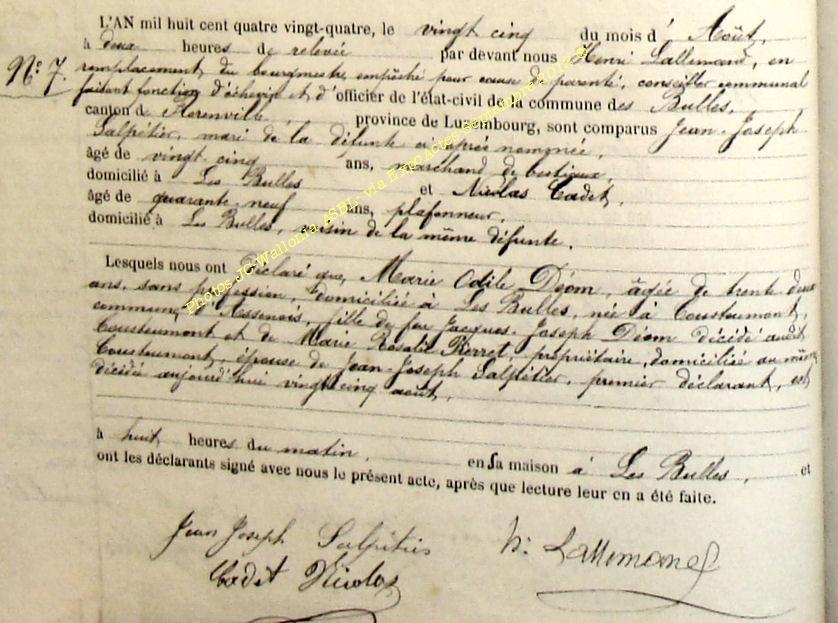 L'AN mil huit cent quatre vingt-quatre, le vingt cinq du mois d'Août,
à deux heures de relevée par devant nous Henri Lallemand, en
N° 7. remplacement du bourgmestre empêché pour cause de parenté, conseiller communal
faisant fonction d'échevin et d'officier de l'état-civil de la commune des Bulles,
canton de Florenville, province de Luxembourg, sont comparus Jean-Joseph
Salpétier, mari de la défunte ci après nommée,
âgé de vingt cinq ans, marchand de bestiaux,
domicilié à Les Bulles et Nicolas Cadet,
âgé de quarante neuf ans, plafonneur,
domicilié à Les Bulles, voisin de la même défunte.
Lesquels nous ont déclaré que, Marie Odile Déom, âgée de trente deux
ans, sans profession, domiciliée à Les Bulles, née à Cousteumont,
commune d'Assenois, fille de feu Jacques-Joseph Déom décédé audit
Cousteumont et de Marie Rosalie Pierret, propriétaire, domiciliée au même
Cousteumont, épouse de Jean-Joseph Salpétier, premier déclarant, est
décédée aujourd'hui vingt cinq août,
à huit heures du matin, en sa maison à Les Bulles, et
ont les déclarants signé avec nous le présent acte, après que lecture leur en a été faite.
Jean Joseph Salpétier
h. Lallemand
Cadet Nicolas
Photos JC Wallonia ASBL, via ExpoActes